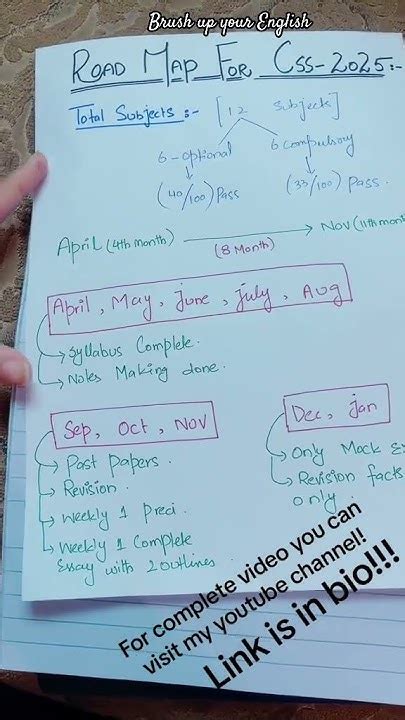 Brush up your English
ROAD MAP FOR CSS-2025:-
Total Subjects :- [12 subjects]
6-optional 6 compulsory
(40/100) Pass (33/100) Pass.
April (4th month) → Nov (11th month
(8 Month)
April, May, june, july, Aug
→ Syllabus Complete.
→ Notes Making done.
Sep, Oct, Nov
→ Past Papers.
→ Revision.
→ Weekly 1 Preci.
→ Weekly 1 Complete
Essay with 2 outlines.
Dec, jan
→ Only Mock
→ Revision facts
only.
For complete video you can
visit my youtube channel!
Link is in bio!!!